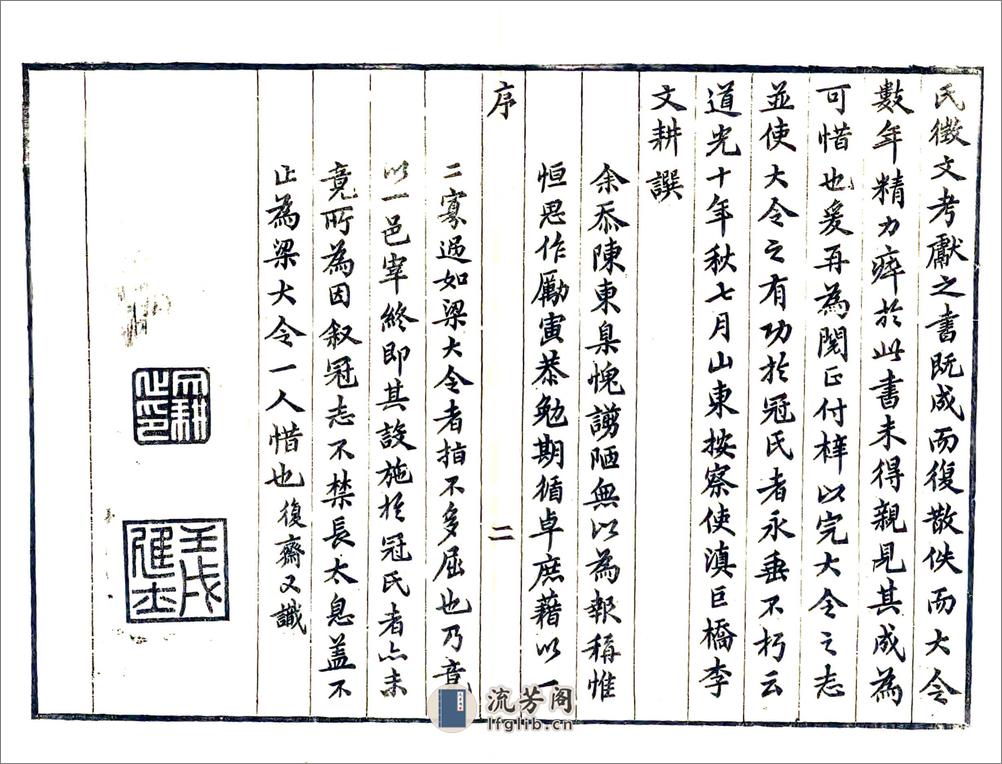 氏徵文考獻之書既成而復散佚而大令
數年精力瘁於此書未得親見其成為
可惜也爰再為閱正付梓以完大令之志
並使大令之有功於冠氏者永垂不朽云
道光十年秋七月山東按察使滇巨橋李
文耕譔
余忝陳東臬愧謭陋無以為報稱惟
恒思作勵寅恭勉期循卓庶藉以一
序
二
二寡過如梁大令者指不多屈也乃竟
以一邑宰終即其設施於冠氏者亦未
竟所為因叙冠志不禁長太息盖不
止為梁大令一人惜也復齋又識
文耕之印
壬戌進士
流芳阁
lfglib.cn